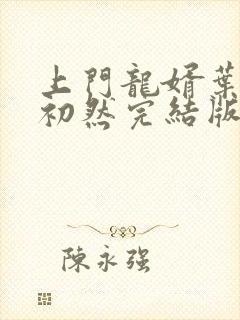 上門龍婿葉
初然完結版
陳永强